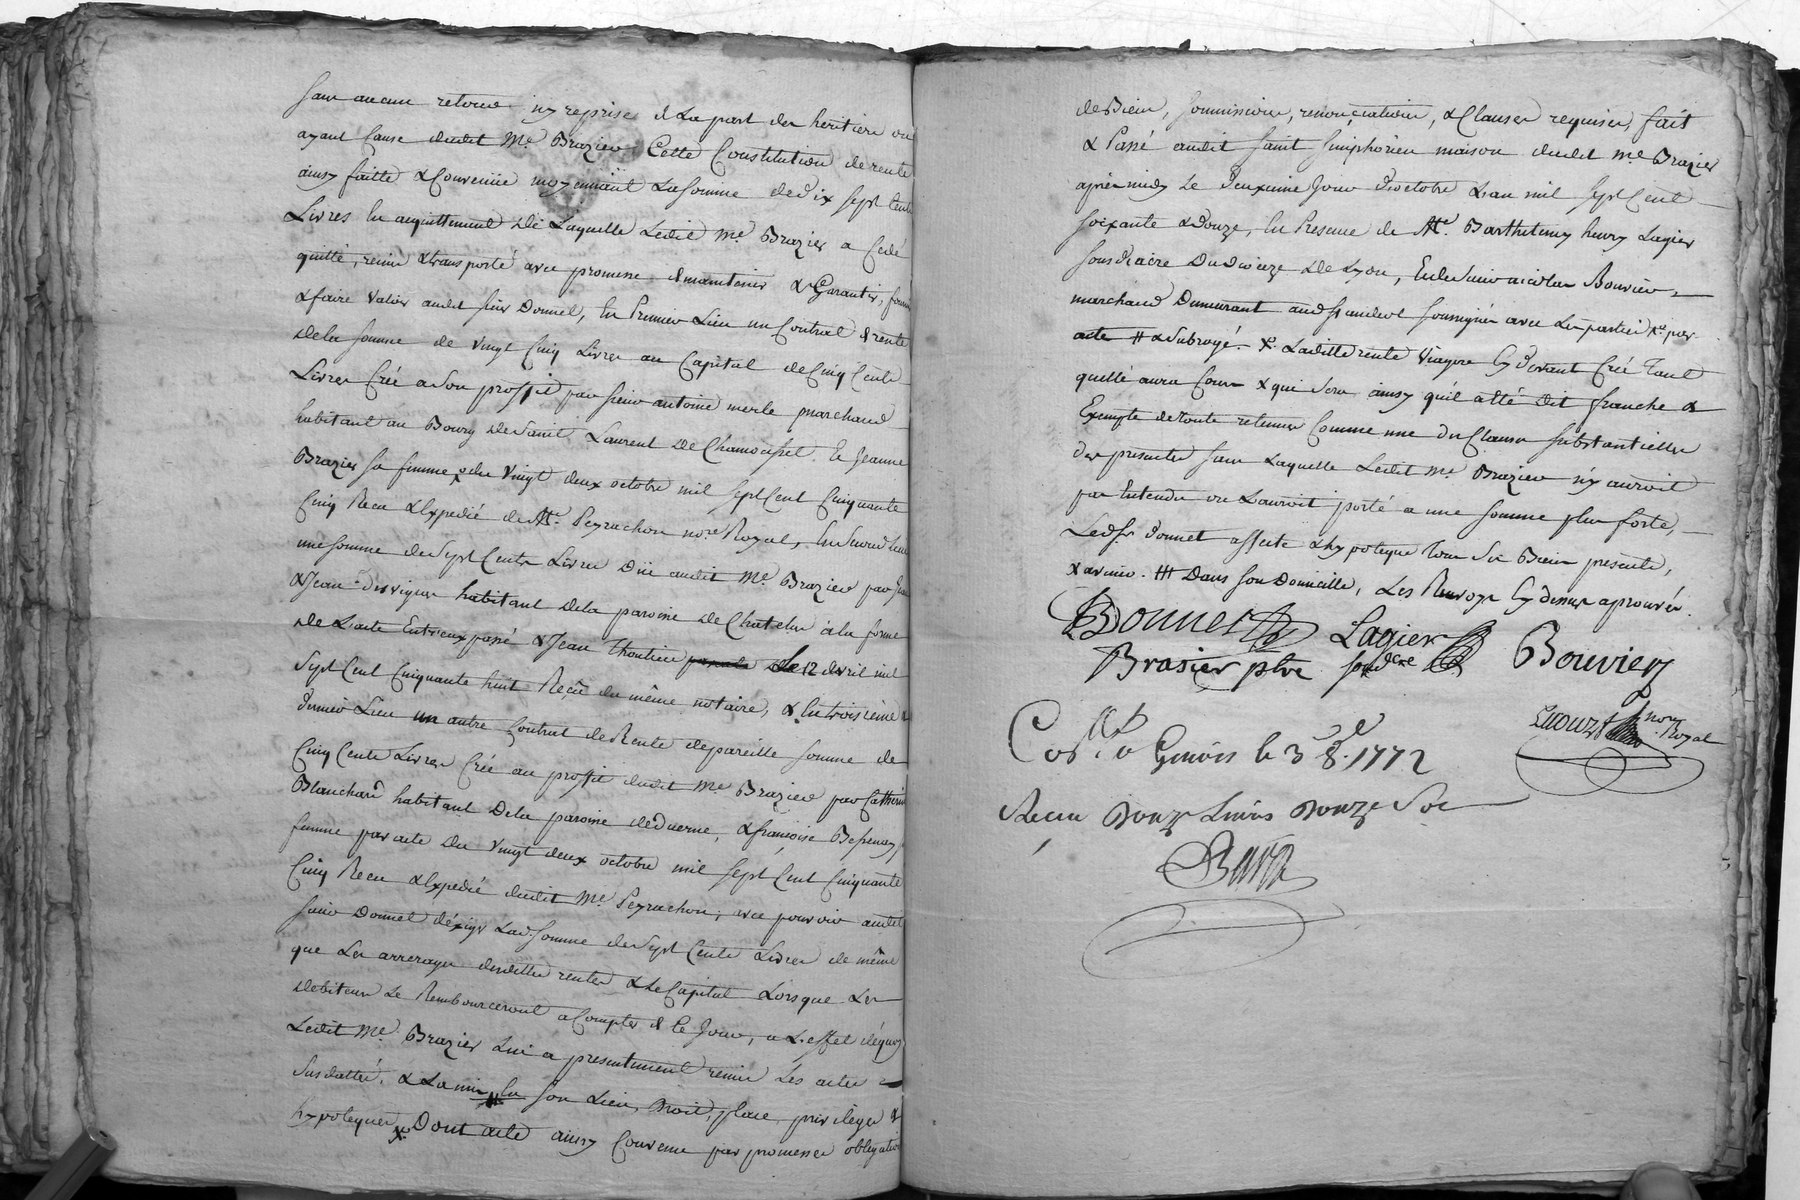 sans aucun retour ny reprise de la part des heritiers ou
ayant Cause dudit Me. Brazier Cette Constitution de rente
ainsy faitte & Convenüe moyennant La somme de dix sept Cents
Livres En acquittement de Laquelle Ledit Me. Brazier a Cedé
quitté, remis & transporté avec promesse de maintenir & Garantir, fournir
& faire valoir audit sieur Donnet, En Premier Lieu un Contrat de rente
de la somme de vingt Cinq Livres au Capital de Cinq Cents
Livres Créé a son proffit par sieur antoine merle marchand
habitant au Bourg de Saint Laurent De Chamousset Et Jeanne
Brazier sa femme, du vingt deux octobre mil sept Cent Cinquante
Cinq Recu & Expedié de Me. Peyrachon nore. Royal, En second lieu
une somme de Sept Cents Livres Düe audit Me. Brazier par
& Jean habitant De la paroisse de Chatelus a la forme
de L'acte Entreux passé & Jean le 12 avril mil
Sept Cent Cinquante huit Reçu du même notaire, & En troisieme &
dernier Lieu un autre Contrat de Rente de pareille somme de
Cinq Cents Livres Créé au proffit dudit Me. Brazier par Catherin
Blanchard habitant De la paroisse de Duerne, & françoise
femme par acte Du vingt deux octobre mil sept Cent Cinquante
Cinq Recu & Expedié dudit Me. Peyrachon, avec pouvoir audit
sieur Donnet d'éxiger Lad. somme de Sept Cents Livres de même
que Les arrerages desdittes rentes & Le Capital Lorsque Les
debiteurs Le Rembourceront a Compter de Ce Jour, a L'effet déquoy
Ledit Me. Brazier Lui a presentement remis Les actes
susdattés, & La mis En son Lieu, Droit, place, privilèges &
hypoteques Dont acte ainsy Convenu par promesses obligation
de Biens, soumissions, renonciations, & Clauses requises, fait
& Passé audit saint simphorien maison dudit Me. Brazier
après midy Le Deuxieme Jour D'octobre L'an mil sept Cent
soixante & Douze, En Presence de Me. Barthelemy henry Lagier
sousdiacre Du dioceze de Lyon, Et de Sieur nicolas Bouvier
marchand Demeurant aud. st. soussignés avec Les parties
acte # & Subrogé. X. Laditte rente viagere Cy devant Créé Tant
quelle aura Cours & qui sera ainsy qu'il a été dit franche &
Exempte de toute retenues Comme une des Clauses substantielles
des presentes sans Laquelle Ledit Me. Brazier n'y auroit
pas Entendu ou L'auroit porté a une somme plus forte,
Led. sr. Donnet affecte & hypoteque Tous Ses Biens presents,
& avenir. # Dans son Domicille, Les Renvoys Cy dessus aprouvés.
Donnet Lagier Bouvier
Brasier ptre sousdcre
nore. Royal
Collé. a le 3 8e. 1772
Recu Douze Livres Douze Sols